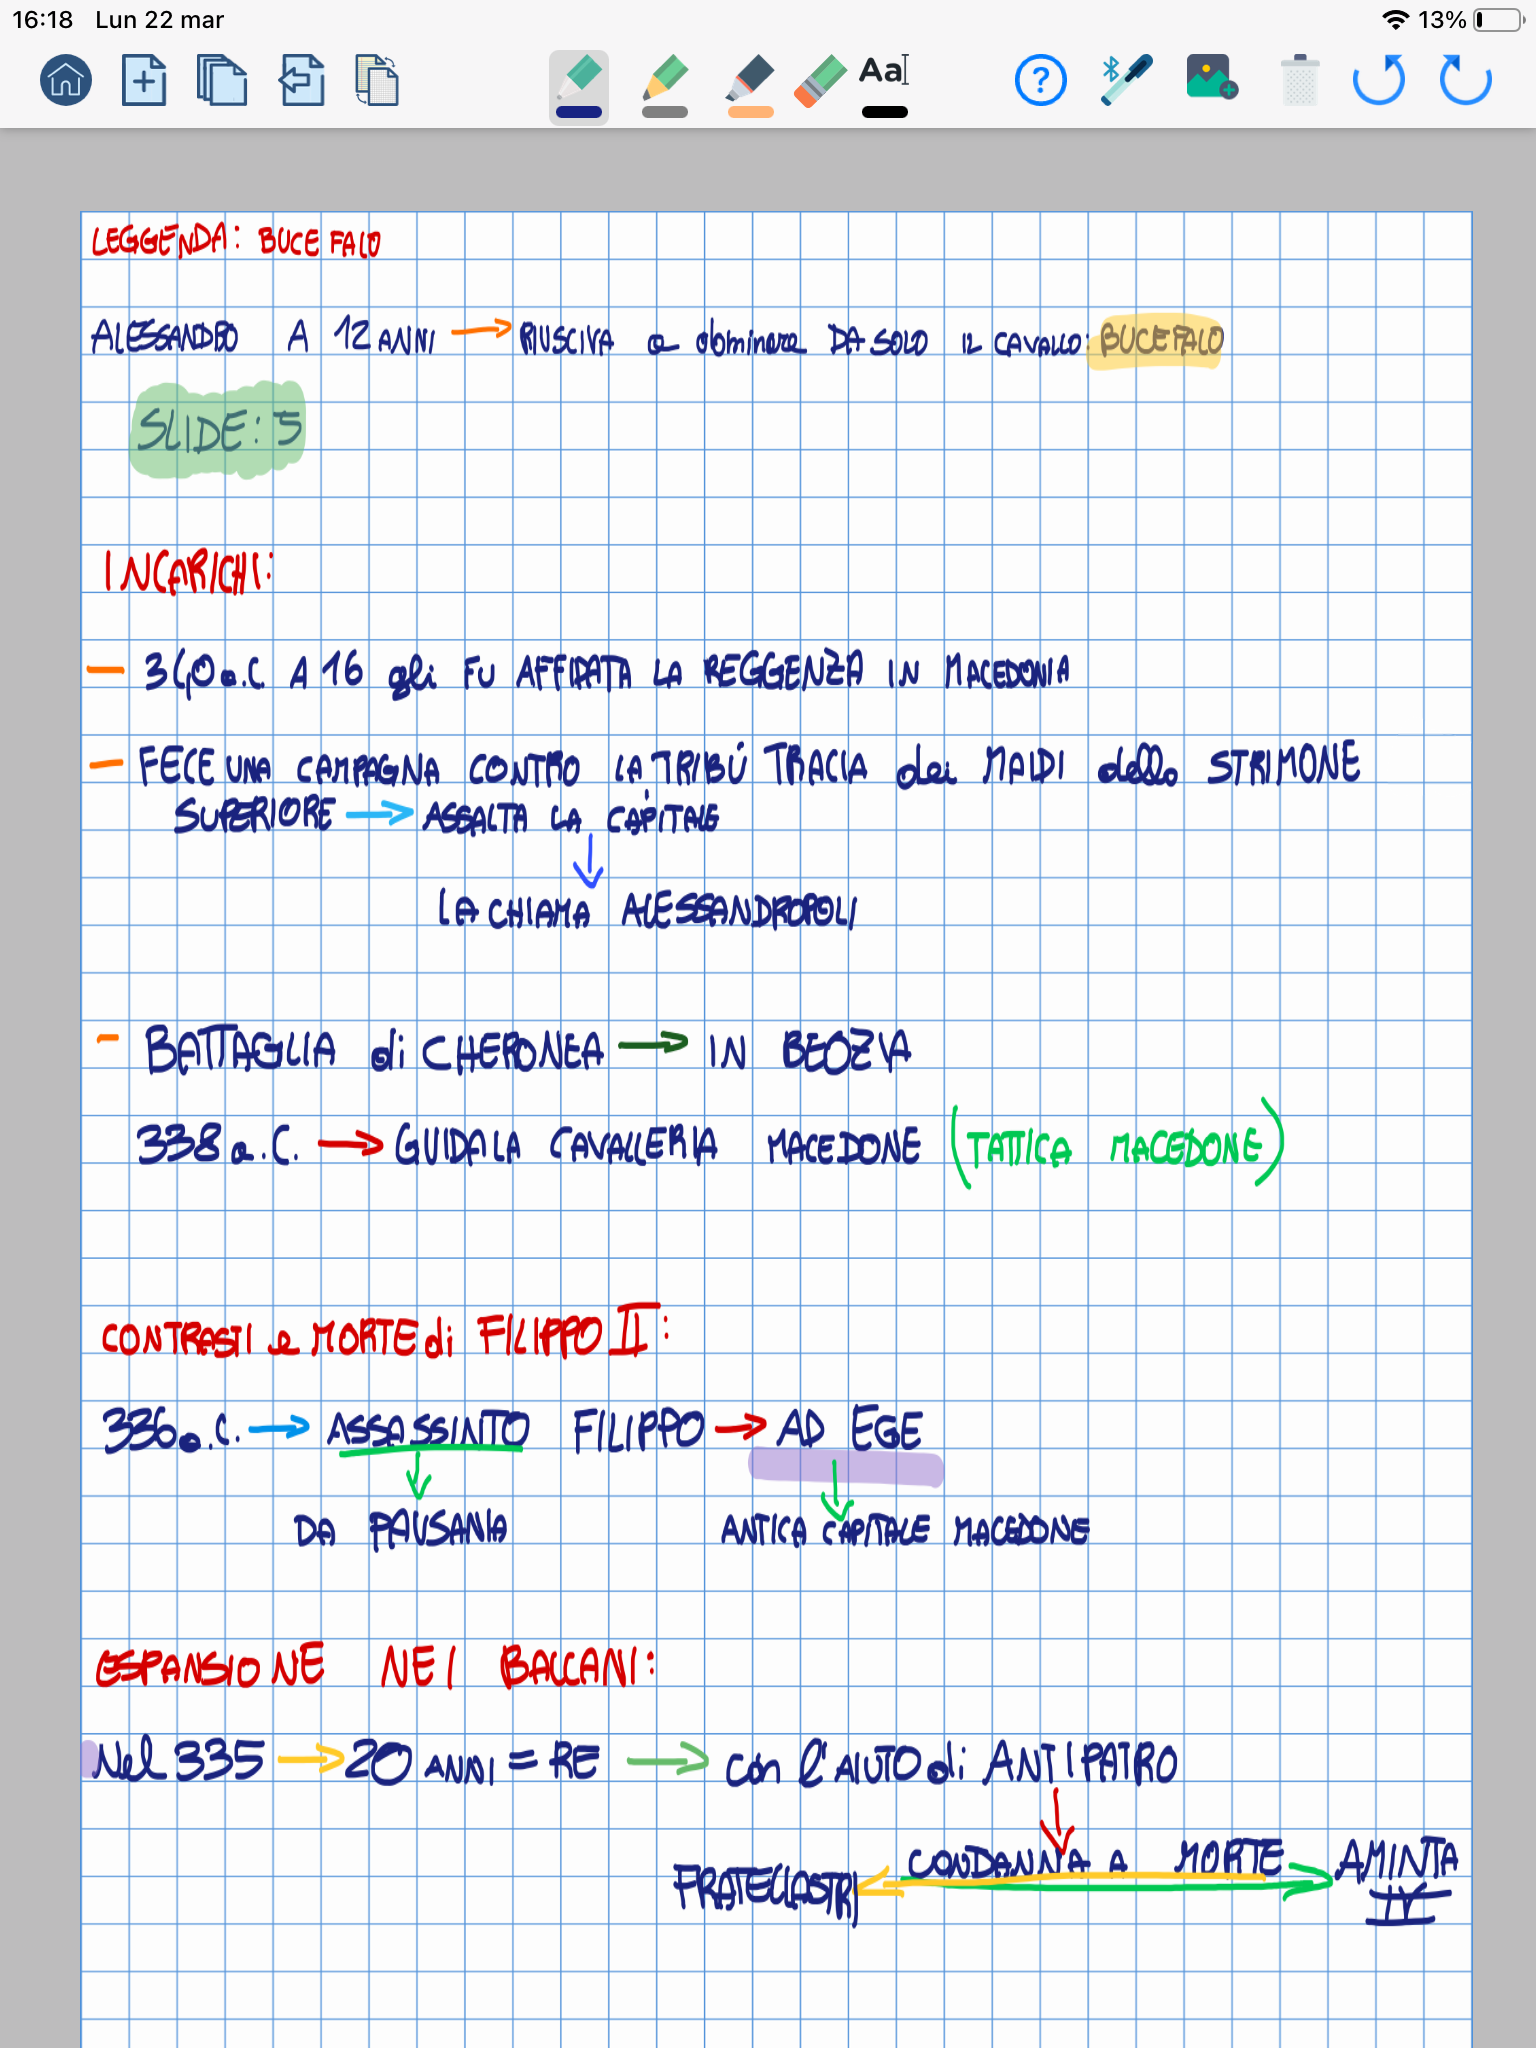 16:18 Lun 22 mar 13%
Aa
LEGGENDA: BUCEFALO
ALESSANDRO A 12 ANNI → RIUSCIVA a dominare DA SOLO IL CAVALLO: BUCEFALO
SLIDE: 5
INCARICHI:
— 340 a.C. A 16 gli FU AFFIDATA LA REGGENZA IN MACEDONIA
— FECE UNA CAMPAGNA CONTRO LA TRIBÚ TRACIA dei MAIDI dello STRIMONE
SUPERIORE → ASSALTA LA CAPITALE
↓
LA CHIAMA ALESSANDROPOLI
- BATTAGLIA di CHERONEA → IN BEOZIA
338 a.C. → GUIDA LA CAVALLERIA MACEDONE (TATTICA MACEDONE)
CONTRASTI e MORTE di FILIPPO II:
336 a.C. → ASSASSINTO FILIPPO → AD EGE
↓ ↓
DA PAUSANIA ANTICA CAPITALE MACEDONE
ESPANSIONE NEI BALCANI:
Nel 335 → 20 ANNI = RE → con l'AIUTO di ANTIPATRO
↓
FRATELLASTRI ← CONDANNA A MORTE → AMINTA
IV